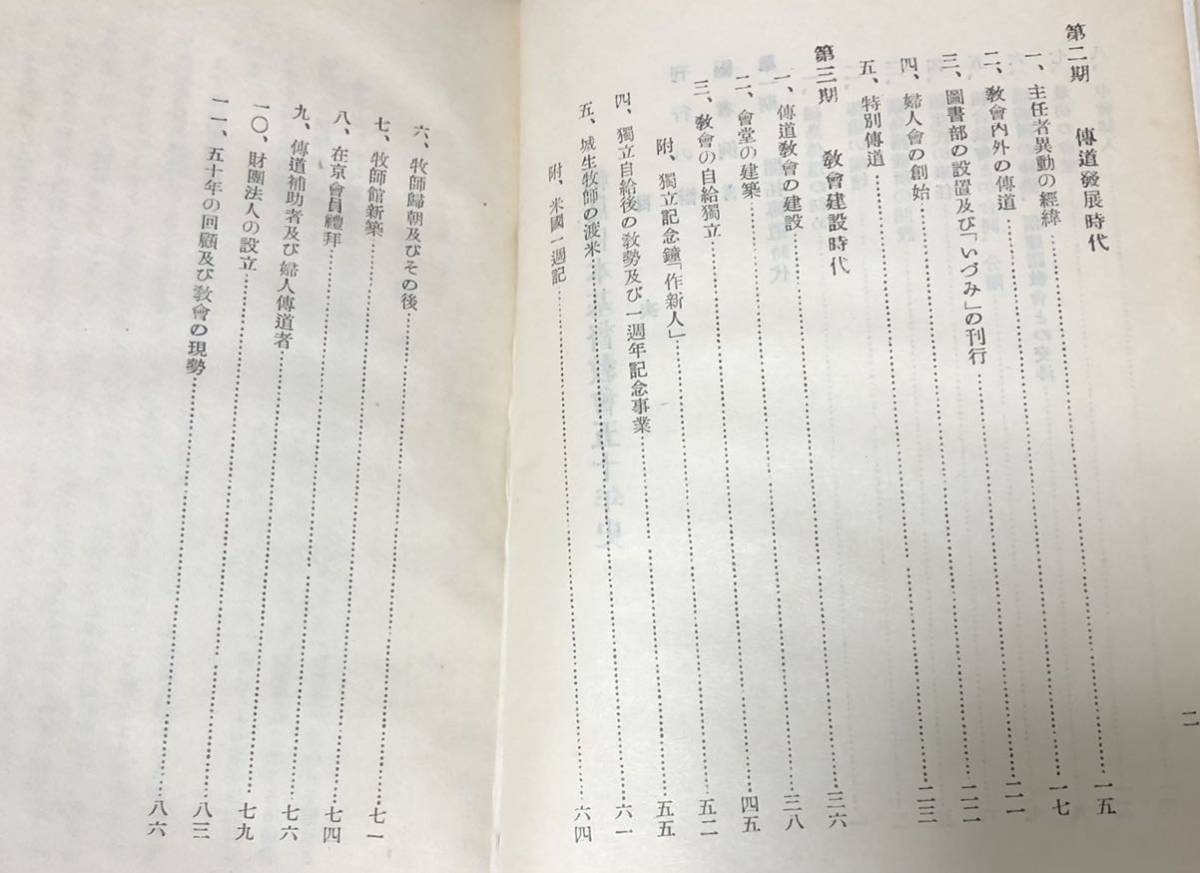 二
第二期　傳道發展時代
一、主任者異動の經緯……一五
二、敎會內外の傳道……一七
三、圖書部の設置及び「いづみ」の刊行……二一
四、婦人會の創始……二二
五、特別傳道……二三
第三期　敎會建設時代
一、傳道敎會の建設……三六
二、會堂の建築……三八
三、敎會の自給獨立……四五
附、獨立記念鐘「作新人」……五二
四、獨立自給後の敎勢及び一週年記念事業……五五
五、城生牧師の渡米……六一
附、米國一週記……六四
六、牧師歸朝及びその後……七一
七、牧師館新築……七四
八、在京會員禮拜……七六
九、傳道補助者及び婦人傳道者……七九
一〇、財團法人の設立……八三
一一、五十年の回顧及び敎會の現勢……八六